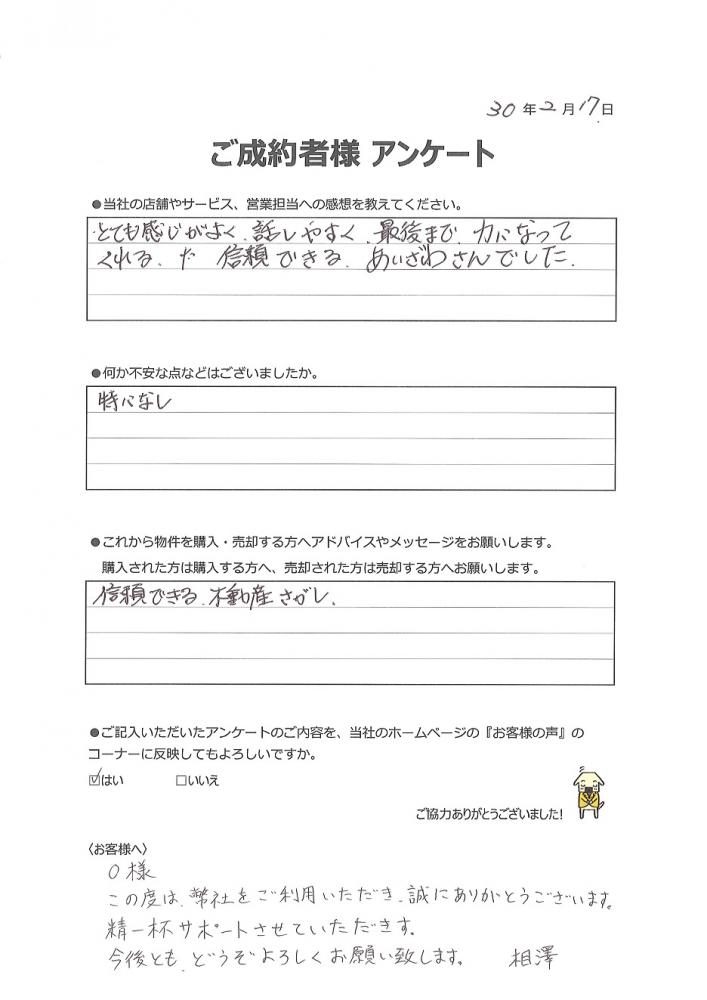 30年2月17日
ご成約者様 アンケート
●当社の店舗やサービス、営業担当への感想を教えてください。
とても感じがよく、話しやすく、最後まで、力になって
くれる、た 信頼できる、あいざわさんでした。
●何か不安な点などはございましたか。
特になし
●これから物件を購入・売却する方へアドバイスやメッセージをお願いします。
購入された方は購入する方へ、売却された方は売却する方へお願いします。
信頼できる、不動産さがし、
●ご記入いただいたアンケートのご内容を、当社のホームページの『お客様の声』の
コーナーに反映してもよろしいですか。
☑はい □いいえ
ご協力ありがとうございました!
〈お客様へ〉
O様
この度は、弊社をご利用いただき、誠にありがとうございます。
精一杯サポートさせていただきす。
今後とも、どうぞよろしくお願い致します。 相澤